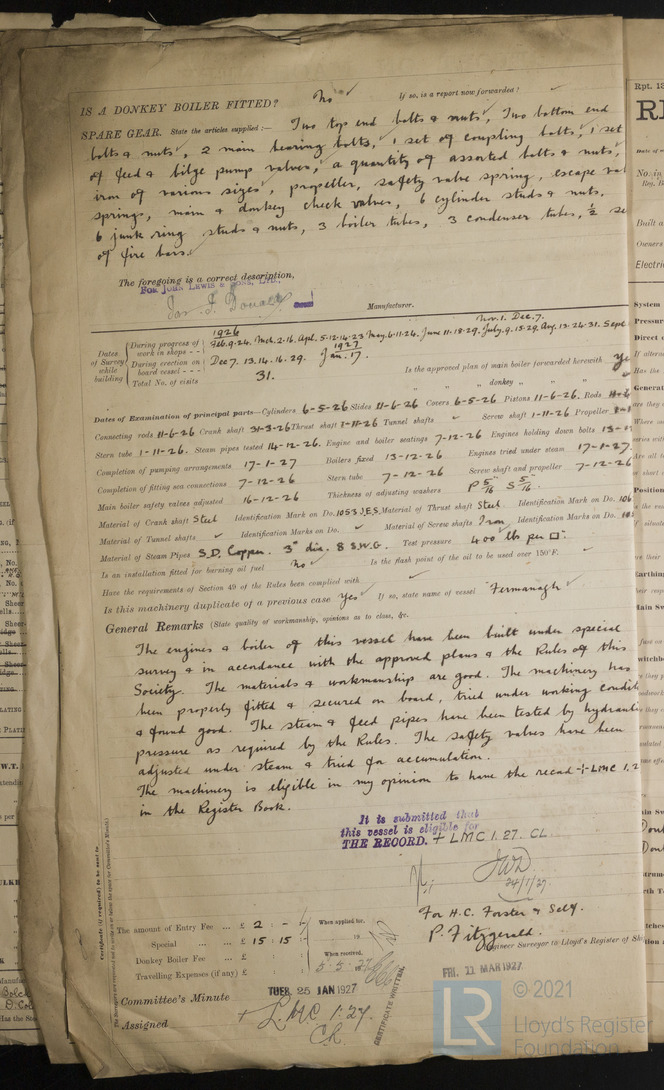 IS A DONKEY BOILER FITTED? No ✓ If so, is a report now forwarded? ✓
SPARE GEAR. State the articles supplied:— Two top end bolts & nuts, Two bottom end
bolts & nuts, 2 main bearing bolts, 1 set of coupling bolts, 1 set
of feed & bilge pump valves, a quantity of assorted bolts & nuts,
iron of various sizes, propeller, safety valve spring, escape val
springs, main & donkey check valves, 6 cylinder studs & nuts.
6 junk ring studs & nuts, 3 boiler tubes, 3 condenser tubes, ½ se
of fire bars.
The foregoing is a correct description,
FOR JOHN LEWIS & SONS, LTD.,
Manufacturer.
1926 Nov. 1. Dec. 7.
Dates of Survey while building
During progress of work in shops - - Feb. 9. 24. Mch. 2. 16. Apl. 5. 12. 14. 23 May. 6. 11. 24. June 11. 18. 29. July. 9. 15. 29. Aug. 13. 24. 31. Sept
1927
During erection on board vessel - - - Dec 7. 13. 14. 16. 29. Jan. 17.
Total No. of visits 31.
Is the approved plan of main boiler forwarded herewith ye
" " " donkey " "
Dates of Examination of principal parts—Cylinders 6-5-26 Slides 11-6-26 Covers 6-5-26 Pistons 11-6-26. Rods
Connecting rods 11-6-26 Crank shaft 31-3-26 Thrust shaft 1-11-26 Tunnel shafts ✓ Screw shaft 1-11-26 Propeller
Stern tube 1-11-26. Steam pipes tested 14-12-26. Engine and boiler seatings 7-12-26 Engines holding down bolts 13-1
Completion of pumping arrangements 17-1-27 Boilers fixed 13-12-26 Engines tried under steam 17-1-27
Completion of fitting sea connections 7-12-26 Stern tube 7-12-26 Screw shaft and propeller 7-12-26
Main boiler safety valves adjusted 16-12-26 Thickness of adjusting washers P 5/16 S 5/16.
Material of Crank shaft Steel Identification Mark on Do. 1053 J.E.S. Material of Thrust shaft Steel Identification Mark on Do. 106
Material of Tunnel shafts ✓ Identification Marks on Do. ✓ Material of Screw shafts Iron Identification Marks on Do.
Material of Steam Pipes S.D. Copper. 3" dia. 8 S.W.G. Test pressure 400 lb per □"
Is an installation fitted for burning oil fuel No ✓ Is the flash point of the oil to be used over 150°F. ✓
Have the requirements of Section 49 of the Rules been complied with ✓
Is this machinery duplicate of a previous case Yes ✓ If so, state name of vessel "Fermanagh" ✓
General Remarks (State quality of workmanship, opinions as to class, &c.
The engines & boiler of this vessel have been built under special
survey & in accordance with the approved plans & the Rules of this
Society. The materials & workmanship are good. The machinery has
been properly fitted & secured on board, tried under working condit
& found good. The steam & feed pipes have been tested by hydraulic
pressure as required by the Rules. The safety valves have been
adjusted under steam & tried for accumulation.
The machinery is eligible in my opinion to have the record +LMC 1.2
in the Register Book.
It is submitted that
this vessel is eligible for
THE RECORD. + LMC 1.27. CL.
24/1/27.
For H.C. Forster & Self.
P. Fitzgerald.
Engineer Surveyor to Lloyd's Register of Sh
The amount of Entry Fee ... £ 2 : - : When applied for,
Special ... ... £ 15 : 15 : 19
Donkey Boiler Fee ... £ When received,
Travelling Expenses (if any) £ 5.5.27
Committee's Minute TUES. 25 JAN 1927
FRI. 11 MAR 1927
Assigned + LMC 1.27.
CL.
CERTIFICATE WRITTEN.
© 2021
Lloyd's Register
Foundation